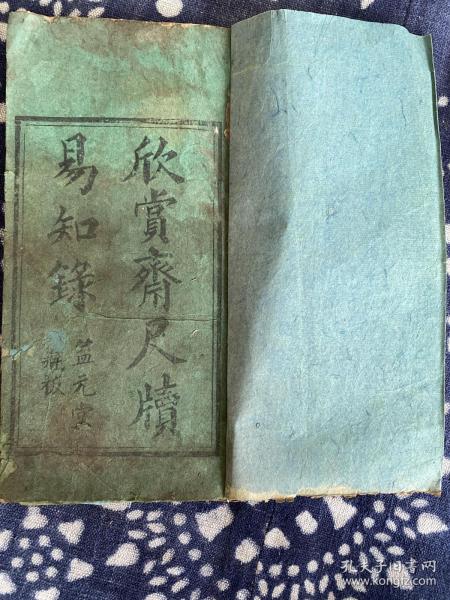 欣賞齋尺牘
易知錄
益元堂
藏板
孔夫子旧书网
www.kongfz.com